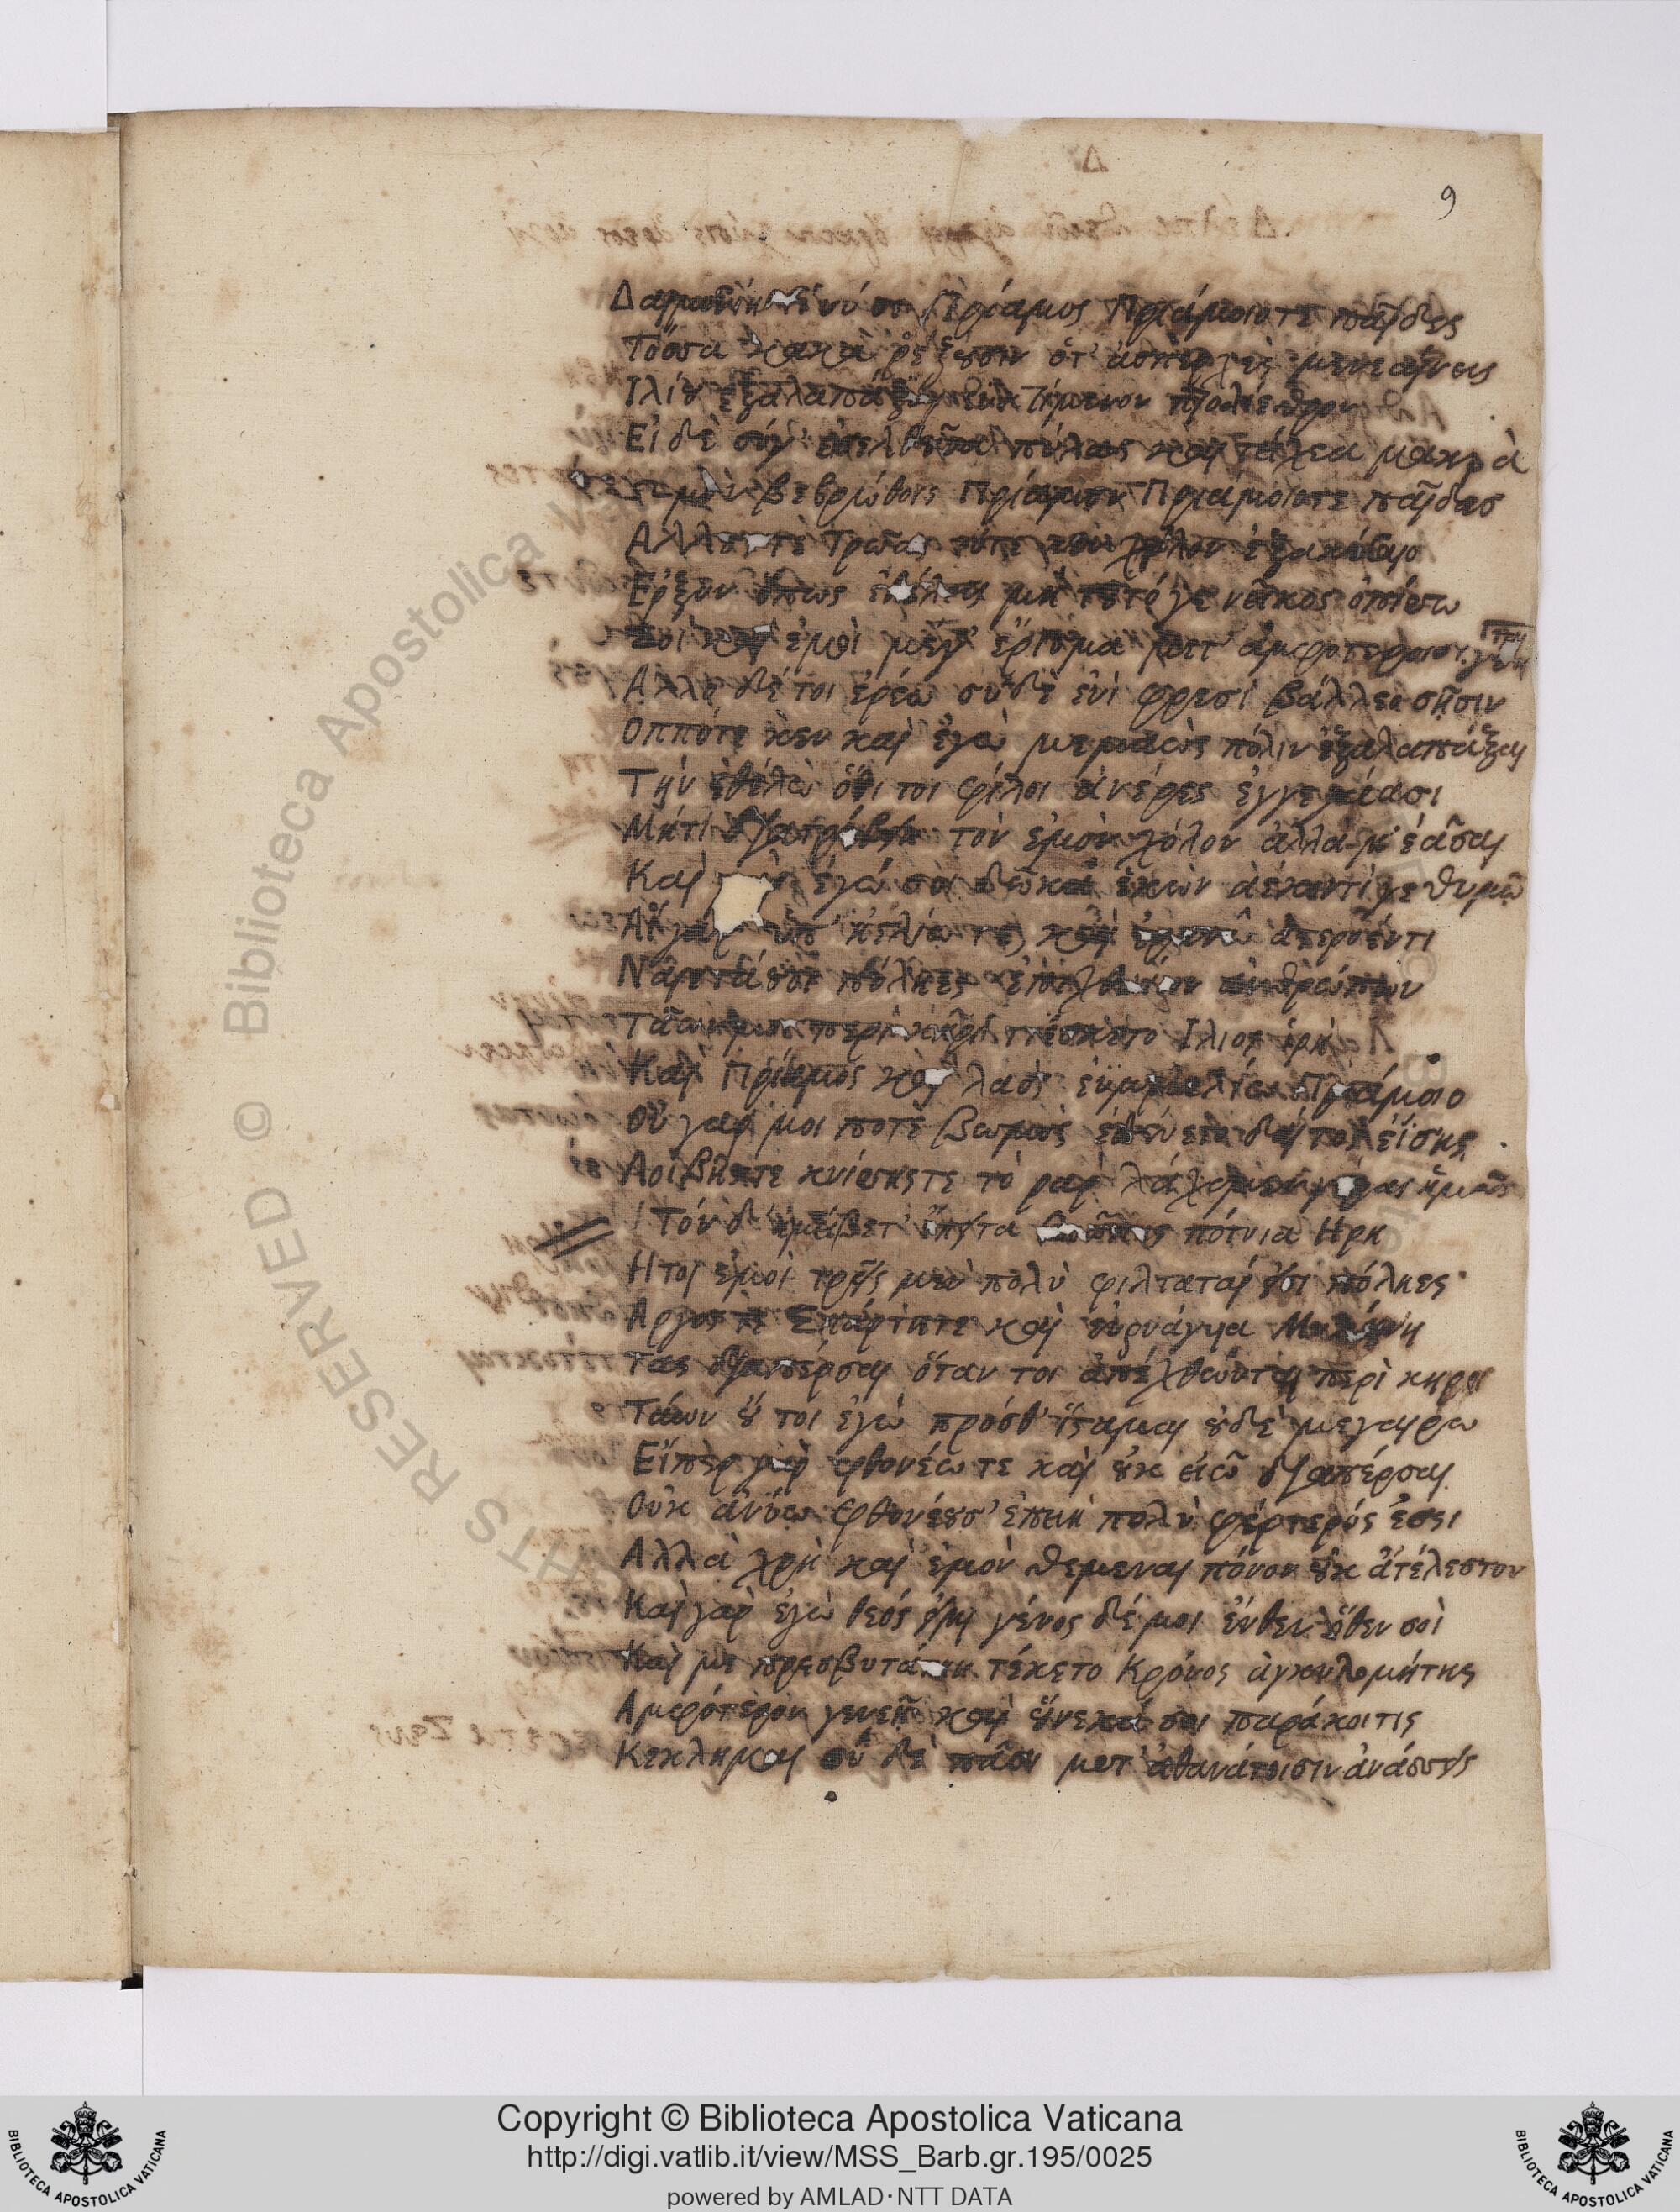 9
Δαιμονίη τί νύ σε Πρίαμος Πριάμοιό τε παῖδες
Τόσσα κακὰ ῥέζουσιν ὅτ' ἀσπερχὲς μενεαίνεις
Ιλίου ἐξαλαπάξαι ἐϋκτίμενον πτολίεθρον
Εἰ δὲ σύγ' εἰσελθοῦσα πύλας καὶ τείχεα μακρὰ
βεβρώθοις Πρίαμον Πριάμοιότε παῖδας
Αλλους τὲ Τρῶας τότε κεν χόλον ἐξακέσαιο
Ερξον ὅπως ἐθέλεις μὴ τοῦτό γε νεῖκος ὀπίσσω
Σοὶ καὶ ἐμοὶ μέγ' ἔρισμα μετ' ἀμφοτέροισι
Αλλο δέ τοι ἐρέω σὺ δὲ ἐνὶ φρεσὶ βάλλεο σῇσιν
Οππότε κεν καὶ ἐγὼ μεμαὼς πόλιν ἐξαλαπάξαι
Τὴν ἐθέλω ὅθι τοι φίλοι ἀνέρες ἐγγεγάασι
Μήτι διατρίβειν τὸν ἐμὸν χόλον ἀλλά μ' ἐᾶσαι
Καὶ ἐγώ σοι δῶκα ἑκὼν ἀέκοντί γε θυμῷ
Αἳ γὰρ ὑπ' ἠελίῳ τε καὶ οὐρανῷ ἀστερόεντι
Ναιετάουσι πόληες ἐπιχθονίων ἀνθρώπων
Τάων μοι περὶ κῆρι τιέσκετο Ιλιος ἱρὴ
Καὶ Πρίαμος καὶ λαὸς ἐϋμμελίω Πριάμοιο
Οὐ γάρ μοι ποτὲ βωμὸς ἐδεύετο δαιτὸς ἐΐσης
Λοιβῆστε κνίσσηςτε τὸ γὰρ λάχομεν γέρας ἡμεῖς
Τόν δ' ἠμείβετ' ἔπειτα βοῶπις πότνια Ηρη
Ητοι ἐμοὶ τρεῖς μὲν πολὺ φίλταταί εἰσι πόληες
Αργος τὲ Σπάρτητε καὶ εὐρυάγυια Μυκήνη
Τὰς διαπέρσαι ὅταν τοι ἀπέχθωνται περὶ κῆρι
Τάων οὔ τοι ἐγὼ πρόσθ' ἵσταμαι οὐδὲ μεγαίρω
Εἴπερ γὰρ φθονέω τε καὶ οὐκ εἰῶ διαπέρσαι
Οὐκ ἀνύω φθονέουσ' ἐπειὴ πολὺ φέρτερός ἐσσι
Αλλὰ χρὴ καὶ ἐμὸν θέμεναι πόνον οὐκ ἀτέλεστον
Καὶ γὰρ ἐγὼ θεός εἰμι γένος δέ μοι ἔνθεν ὅθεν σοὶ
Καί με πρεσβυτάτην τέκετο Κρόνος ἀγκυλομήτης
Αμφότερον γενεῇ καὶ οὕνεκα σὴ παράκοιτις
Κέκλημαι σὺ δὲ πᾶσι μετ' ἀθανάτοισιν ἀνάσσεις
Copyright © Biblioteca Apostolica Vaticana
http://digi.vatlib.it/view/MSS_Barb.gr.195/0025
powered by AMLAD·NTT DATA
BIBLIOTECA APOSTOLICA VATICANA
BIBLIOTECA APOSTOLICA VATICANA